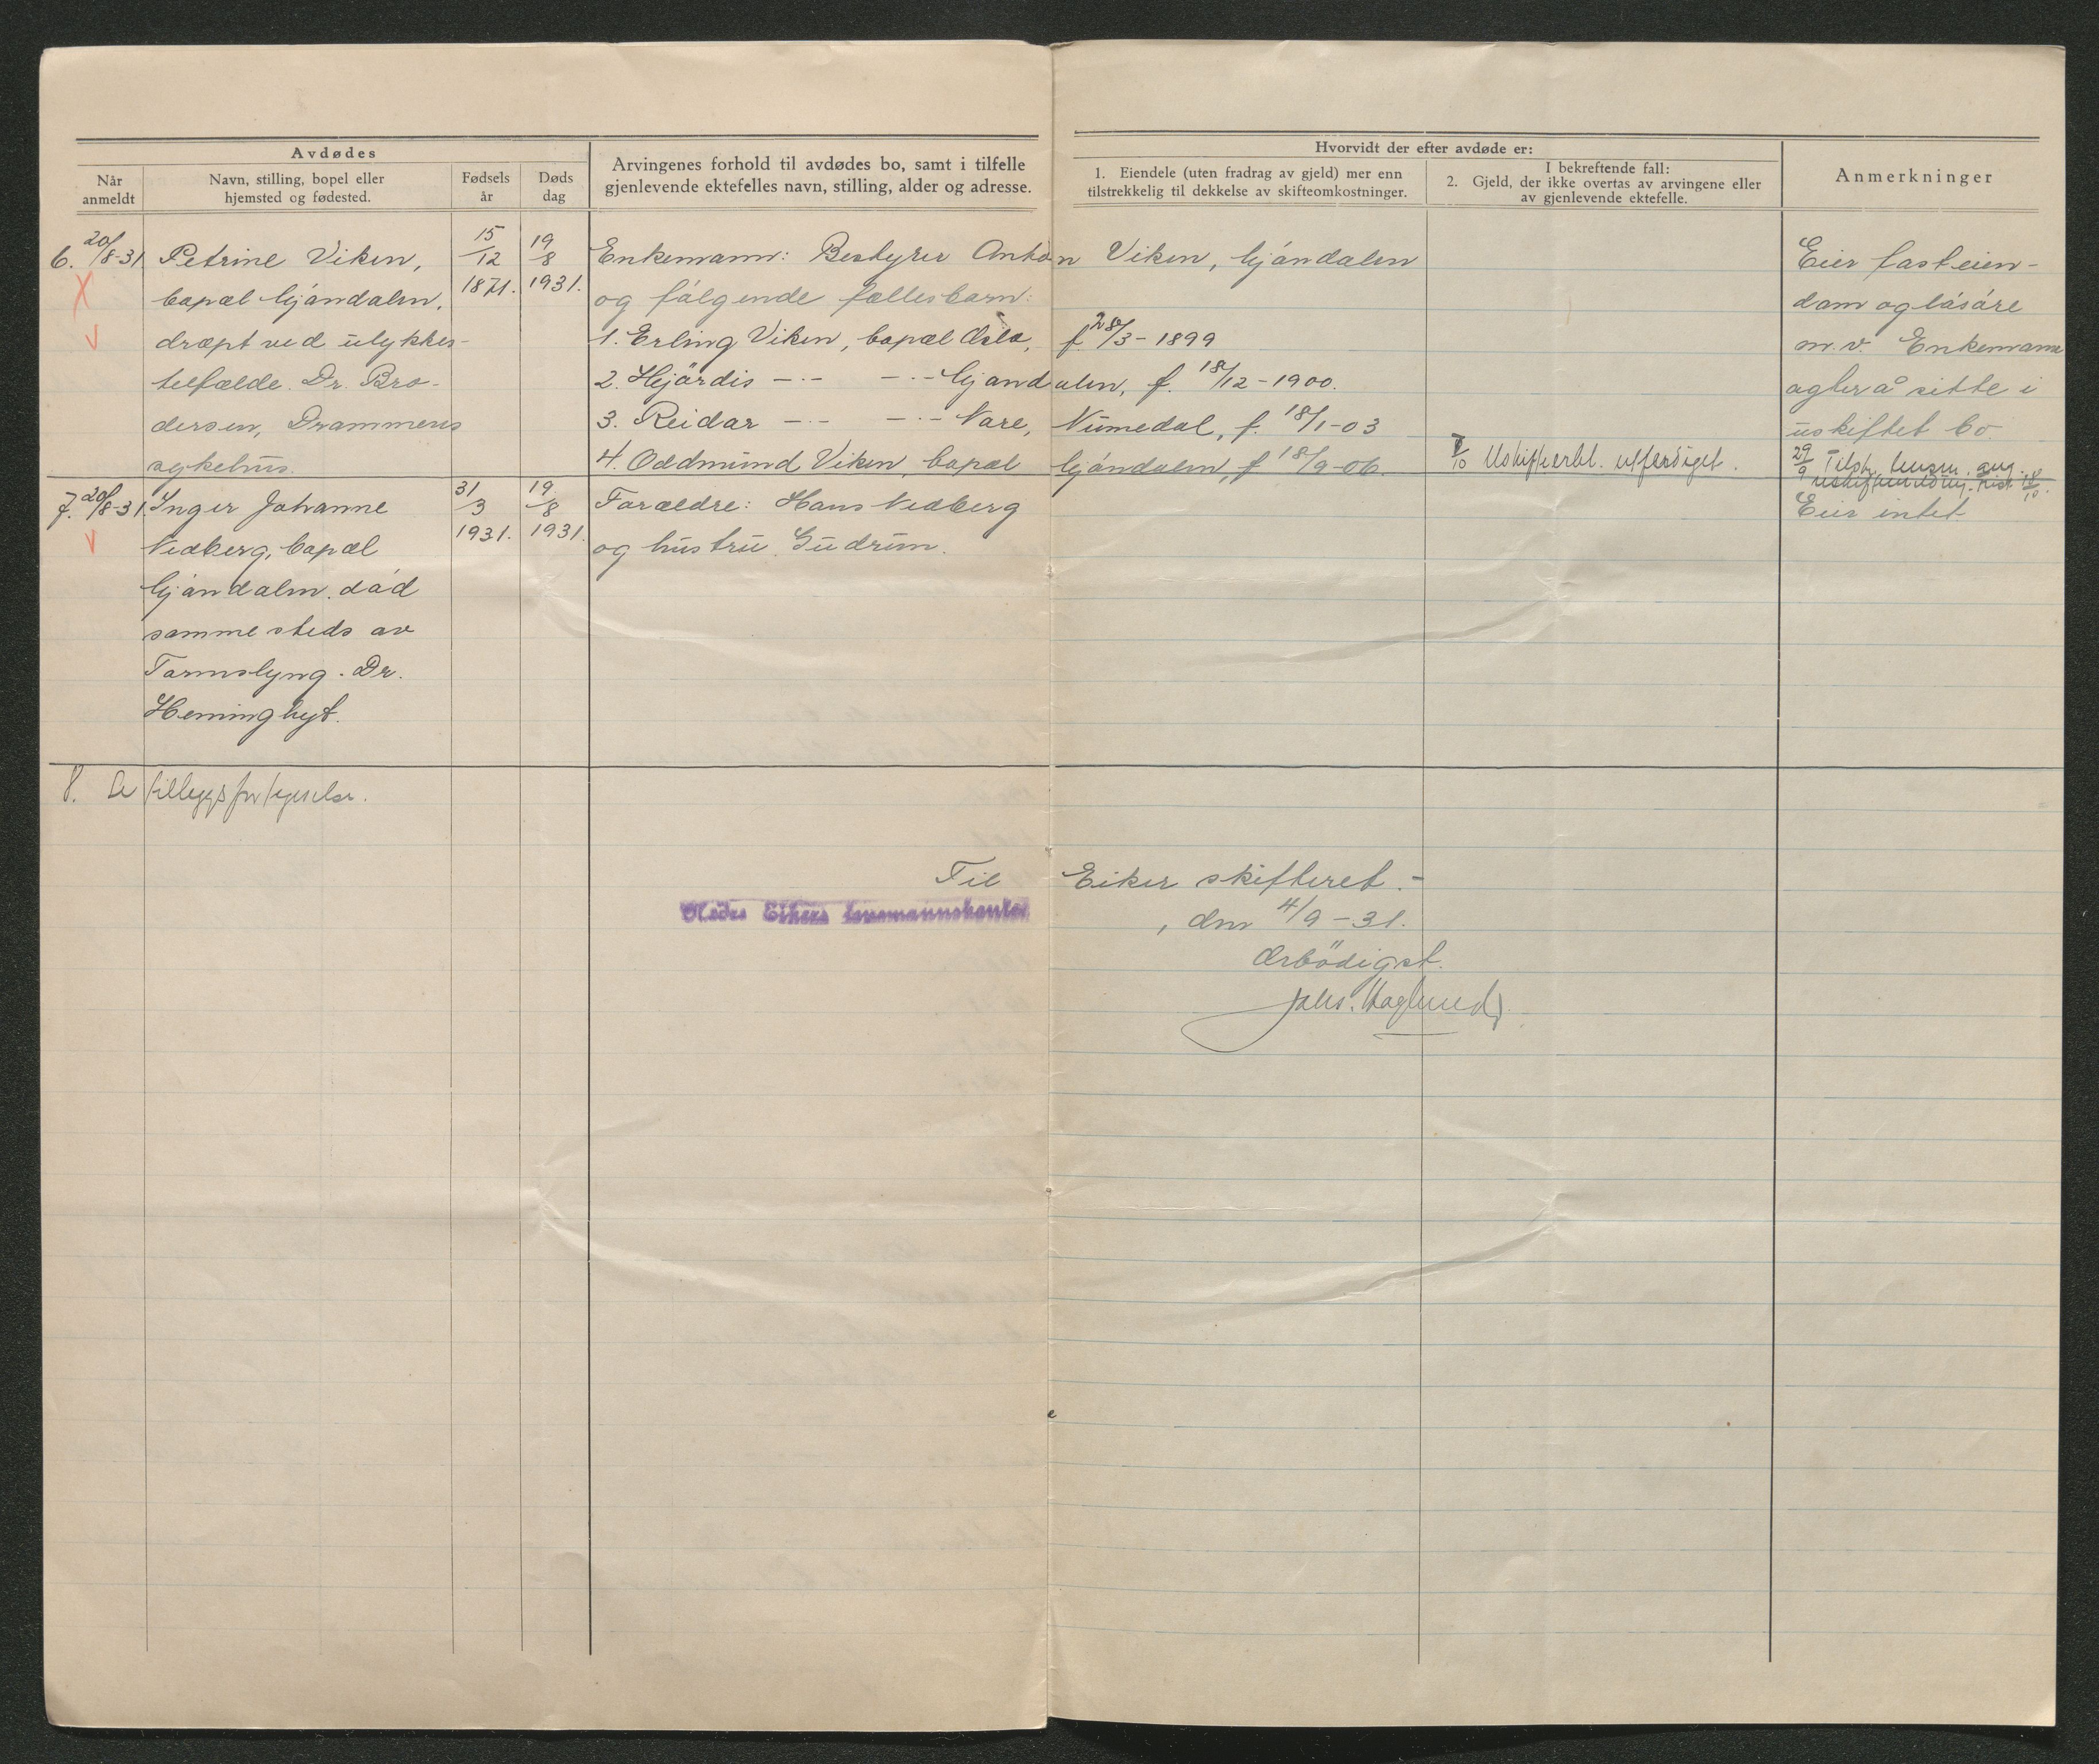 Avdødes
Når
anmeldt
Navn, stilling, bopel eller
hjemsted og fødested.
Fødsels
år
Døds
dag
Arvingenes forhold til avdødes bo, samt i tilfelle
gjenlevende ektefelles navn, stilling, alder og adresse.
Hvorvidt der efter avdøde er:
1. Eiendele (uten fradrag av gjeld) mer enn
tilstrekkelig til dekkelse av skifteomkostninger.
I bekreftende fall:
2. Gjeld, der ikke overtas av arvingene eller
av gjenlevende ektefelle.
Anmerkninger
6. 20/8-31
Petrine Viken,
bopæl Gjöndalen,
dræpt ved ulykkes-
telfælde. Dr. Bro-
dersen, Drammens
sykehus.
15/12
1871.
19/8
1931.
Enkemann: Bestyrer Anton Viken, Gjöndalen
og følgende fællesbarn:
1. Erling Viken, bopæl Oslo, f. 28/3-1899
2. Hjördis -..- -..- Gjøndalen, f. 18/12-1900.
3. Reidar -..- -..- Nore, Numedal, f. 18/1-03
4. Oddmund Viken, bopæl Gjöndalen, f 18/9-06.
Uskifteatt. utferdiget.
Eier fasteien-
dom og løsøre
m.v. Enkemann
agter å sitte i
uskiftet bo
29/9
7. 20/8-31
Inger Johanne
Nedberg, bopæl
Gjöndalen. död
sammesteds av
Tarmslyng. Dr.
Heminghyt.
31/3
1931.
19/8
1931.
Forældre: Hans Nedberg
og hustru Gudrun.
Eier intet
8. Se tilleggsfortegnelse.
Til Eiker skifteret.-
Nedre Eikers lensmannskontor, den 4/9-31.
Ærbödigst.
Johs. Haglund